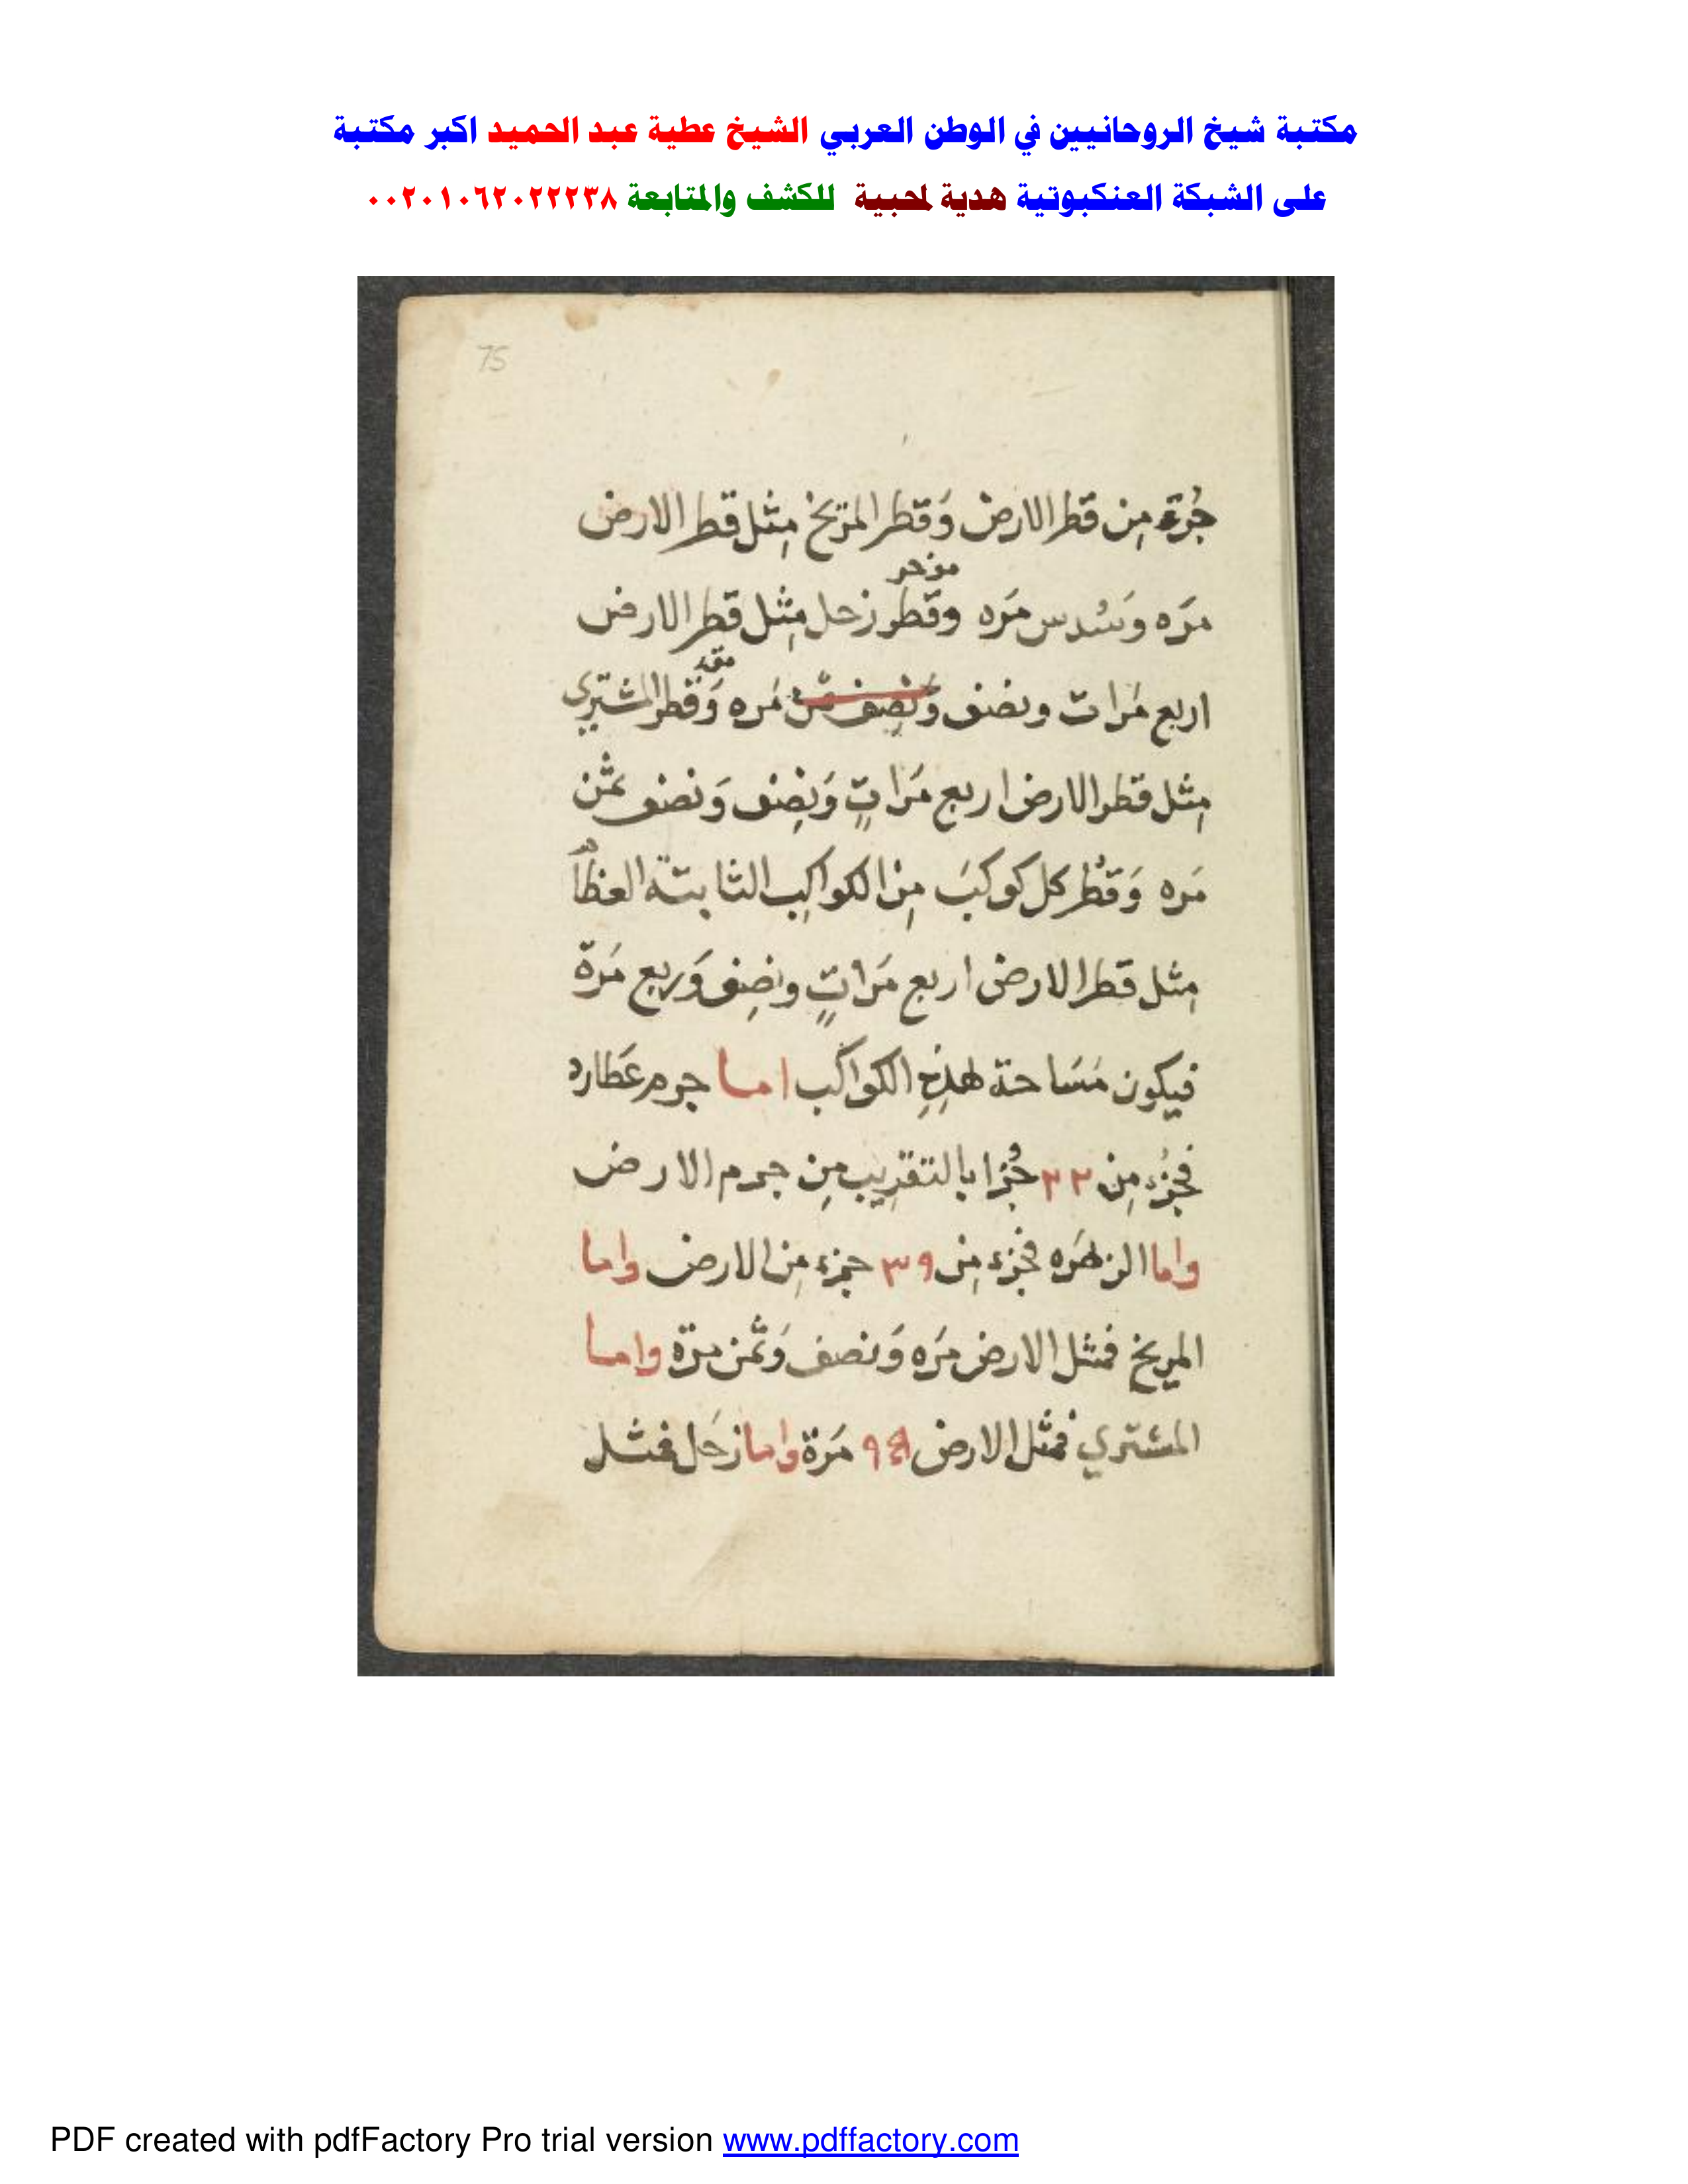 مكتبة شيخ الروحانيين في الوطن العربي الشيخ عطية عبد الحميد اكبر مكتبة
على الشبكة العنكبوتية هدية لمحبية للكشف والمتابعة ٠٠٢٠١٠٦٢٠٢٢٢٣٨
75
جُزء مِن قطر الارض وَقطر المريخ مِثل قطر الارض
موخر
مَره وَسُدس مَره وقطر زحل مِثل قطر الارض
مقد
اربع مَرات ونصف وَنصِف ثمن مَره وَقطر المشتري
مِثل قطر الارض اربع مَراتٍ وَنصِف وَنصف ثمن
مَره وَقُطر كل كوكبَ مِن الكواكِب الثابتة العظام
مِثل قطر الارض اربع مَراتٍ ونصِف وَربع مَرة
فيكون مَسَاحة هذِهِ الكواكب اما جرم عَطارد
فجُزء مِن ٣٢ جُزا بالتقرِيب مِن جرم الارض
واما الزهَره فجزء مِن ٣٩ جزء مِن الارض واما
المريخ فمثل الارض مَره وَنصف وَثُمن مرة واما
المشتري فمثل الارض مَرة واما زحَل فمثل
PDF created with pdfFactory Pro trial version www.pdffactory.com